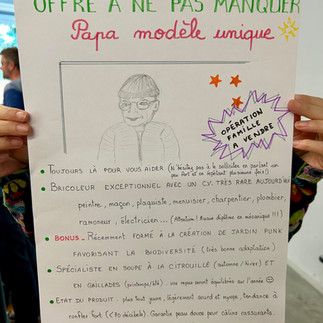 OFFRE A NE PAS MANQUER
Papa modèle unique
OPÉRATION
FAMILLE
A VENDRE
• TOUJOURS LÀ POUR VOUS AIDER (N'hésitez pas à le solliciter en parlant un
peu fort et en répétant plusieurs fois)
• BRICOLEUR EXCEPTIONNEL AVEC UN C.V. TRÈS RARE AUJOURD'HUI
peintre, maçon, plaquiste, menuisier, charpentier, plombier,
ramoneur, électricien... (Attention! Aucun diplôme en mécanique!!!)
• BONUS - Récemment FORMÉ À LA CRÉATION DE JARDIN PUNK
FAVORISANT LA BIODIVERSITÉ (très bonne adaptation)
• SPÉCIALISTE EN SOUPE À LA CITROUILLE (automne / hiver) ET
EN GRILLADES (printemps/été) : vos repas seront équilibrés sur l'année
• ETAT DU PRODUIT - plus tout jeune, légèrement sourd et myope, tendance à
ronfler fort (<90 décibels). Garantie peau douce pour câlins rassurants.